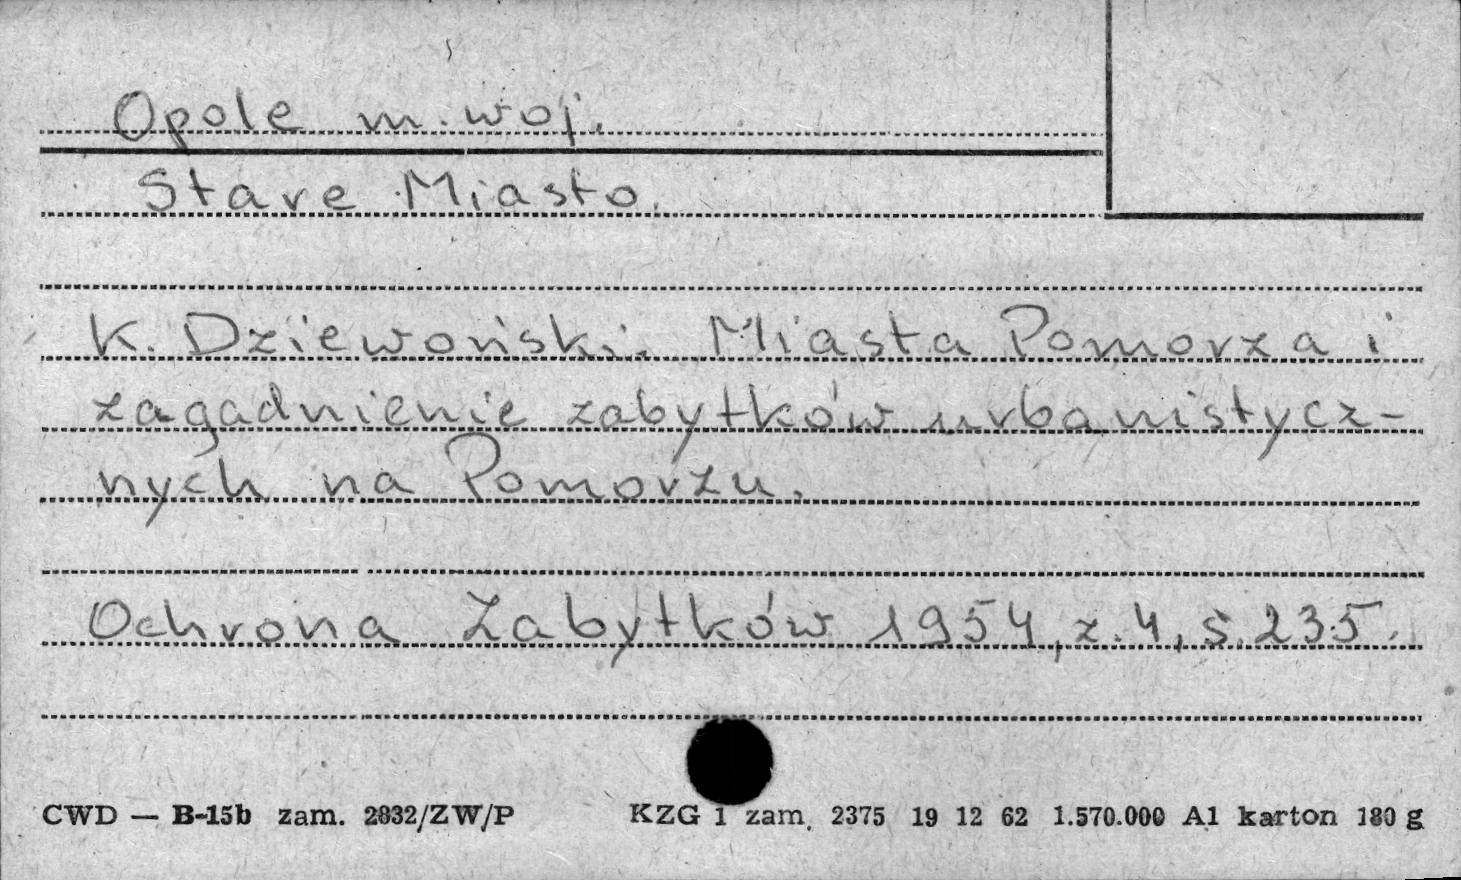 Opole m. woj.
Stare Miasto.
K. Dziewoński. Miasta Pomorza i
zagadnienie zabytków urbanistycz-
nych na Pomorzu.
Ochrona Zabytków 1954, z. 4, s. 235.
CWD — B-15b zam. 2832/ZW/P KZG 1 zam. 2375 19 12 62 1.570.000 A1 karton 180 g